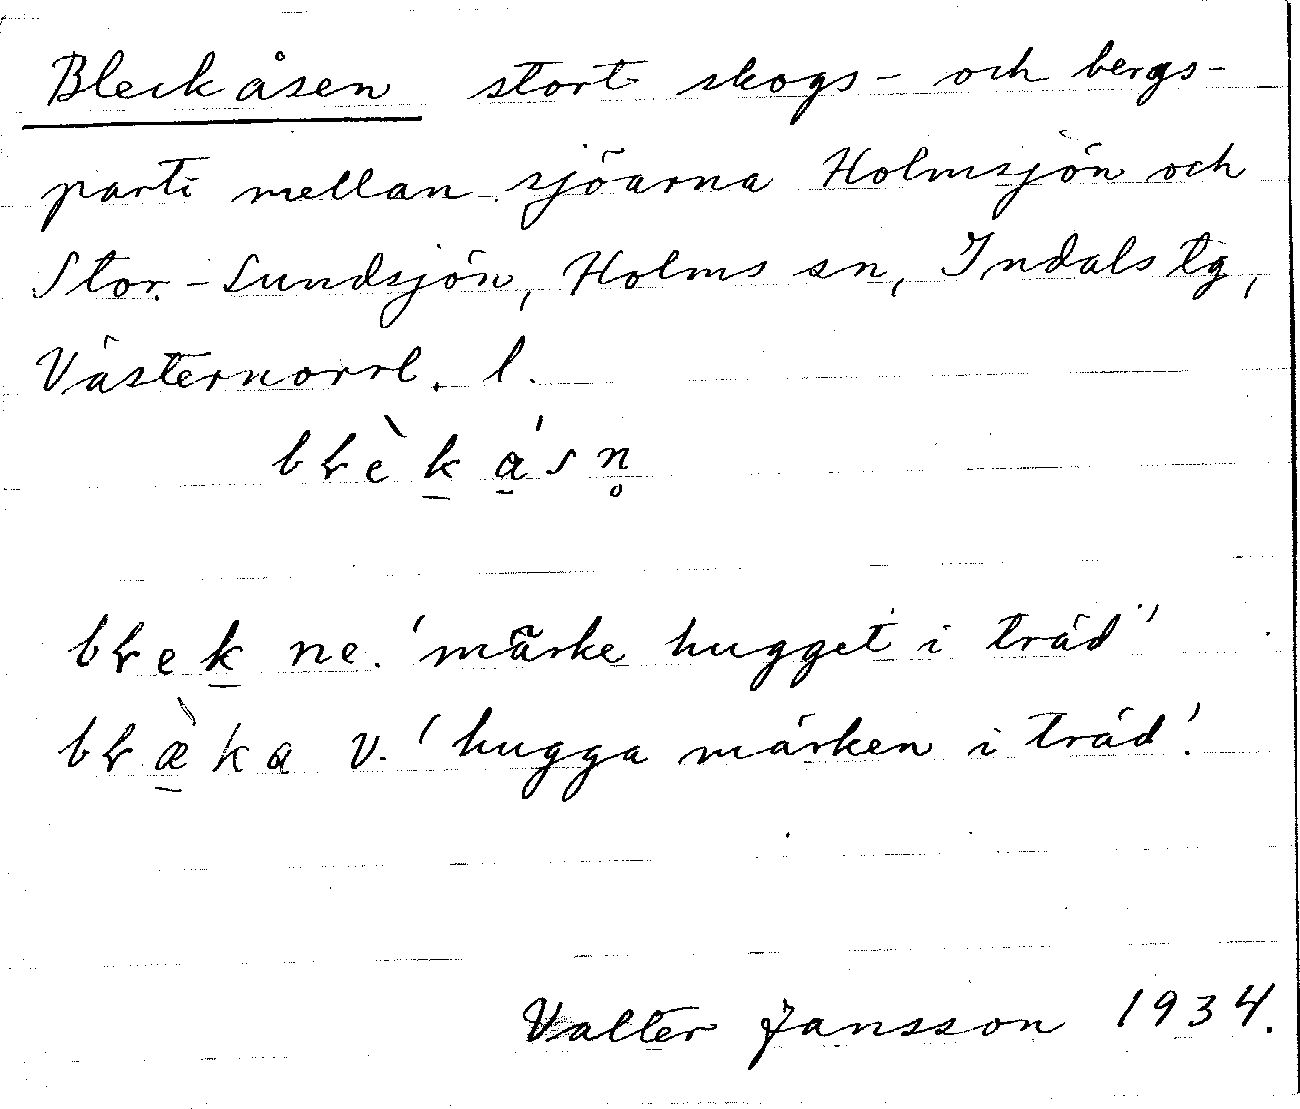 Bleckåsen stort skogs- och bergs-
parti mellan sjöarna Holmsjön och
Stor-Sundsjön, Holms sn, Indals tg,
Västernorrl. l.
bɽèk̲ǻ̲sn̥
bɽek̲ ne. 'märke hugget i träd'
bɽæ̲̀ka v. 'hugga märken i träd'.
Valter Jansson 1934.